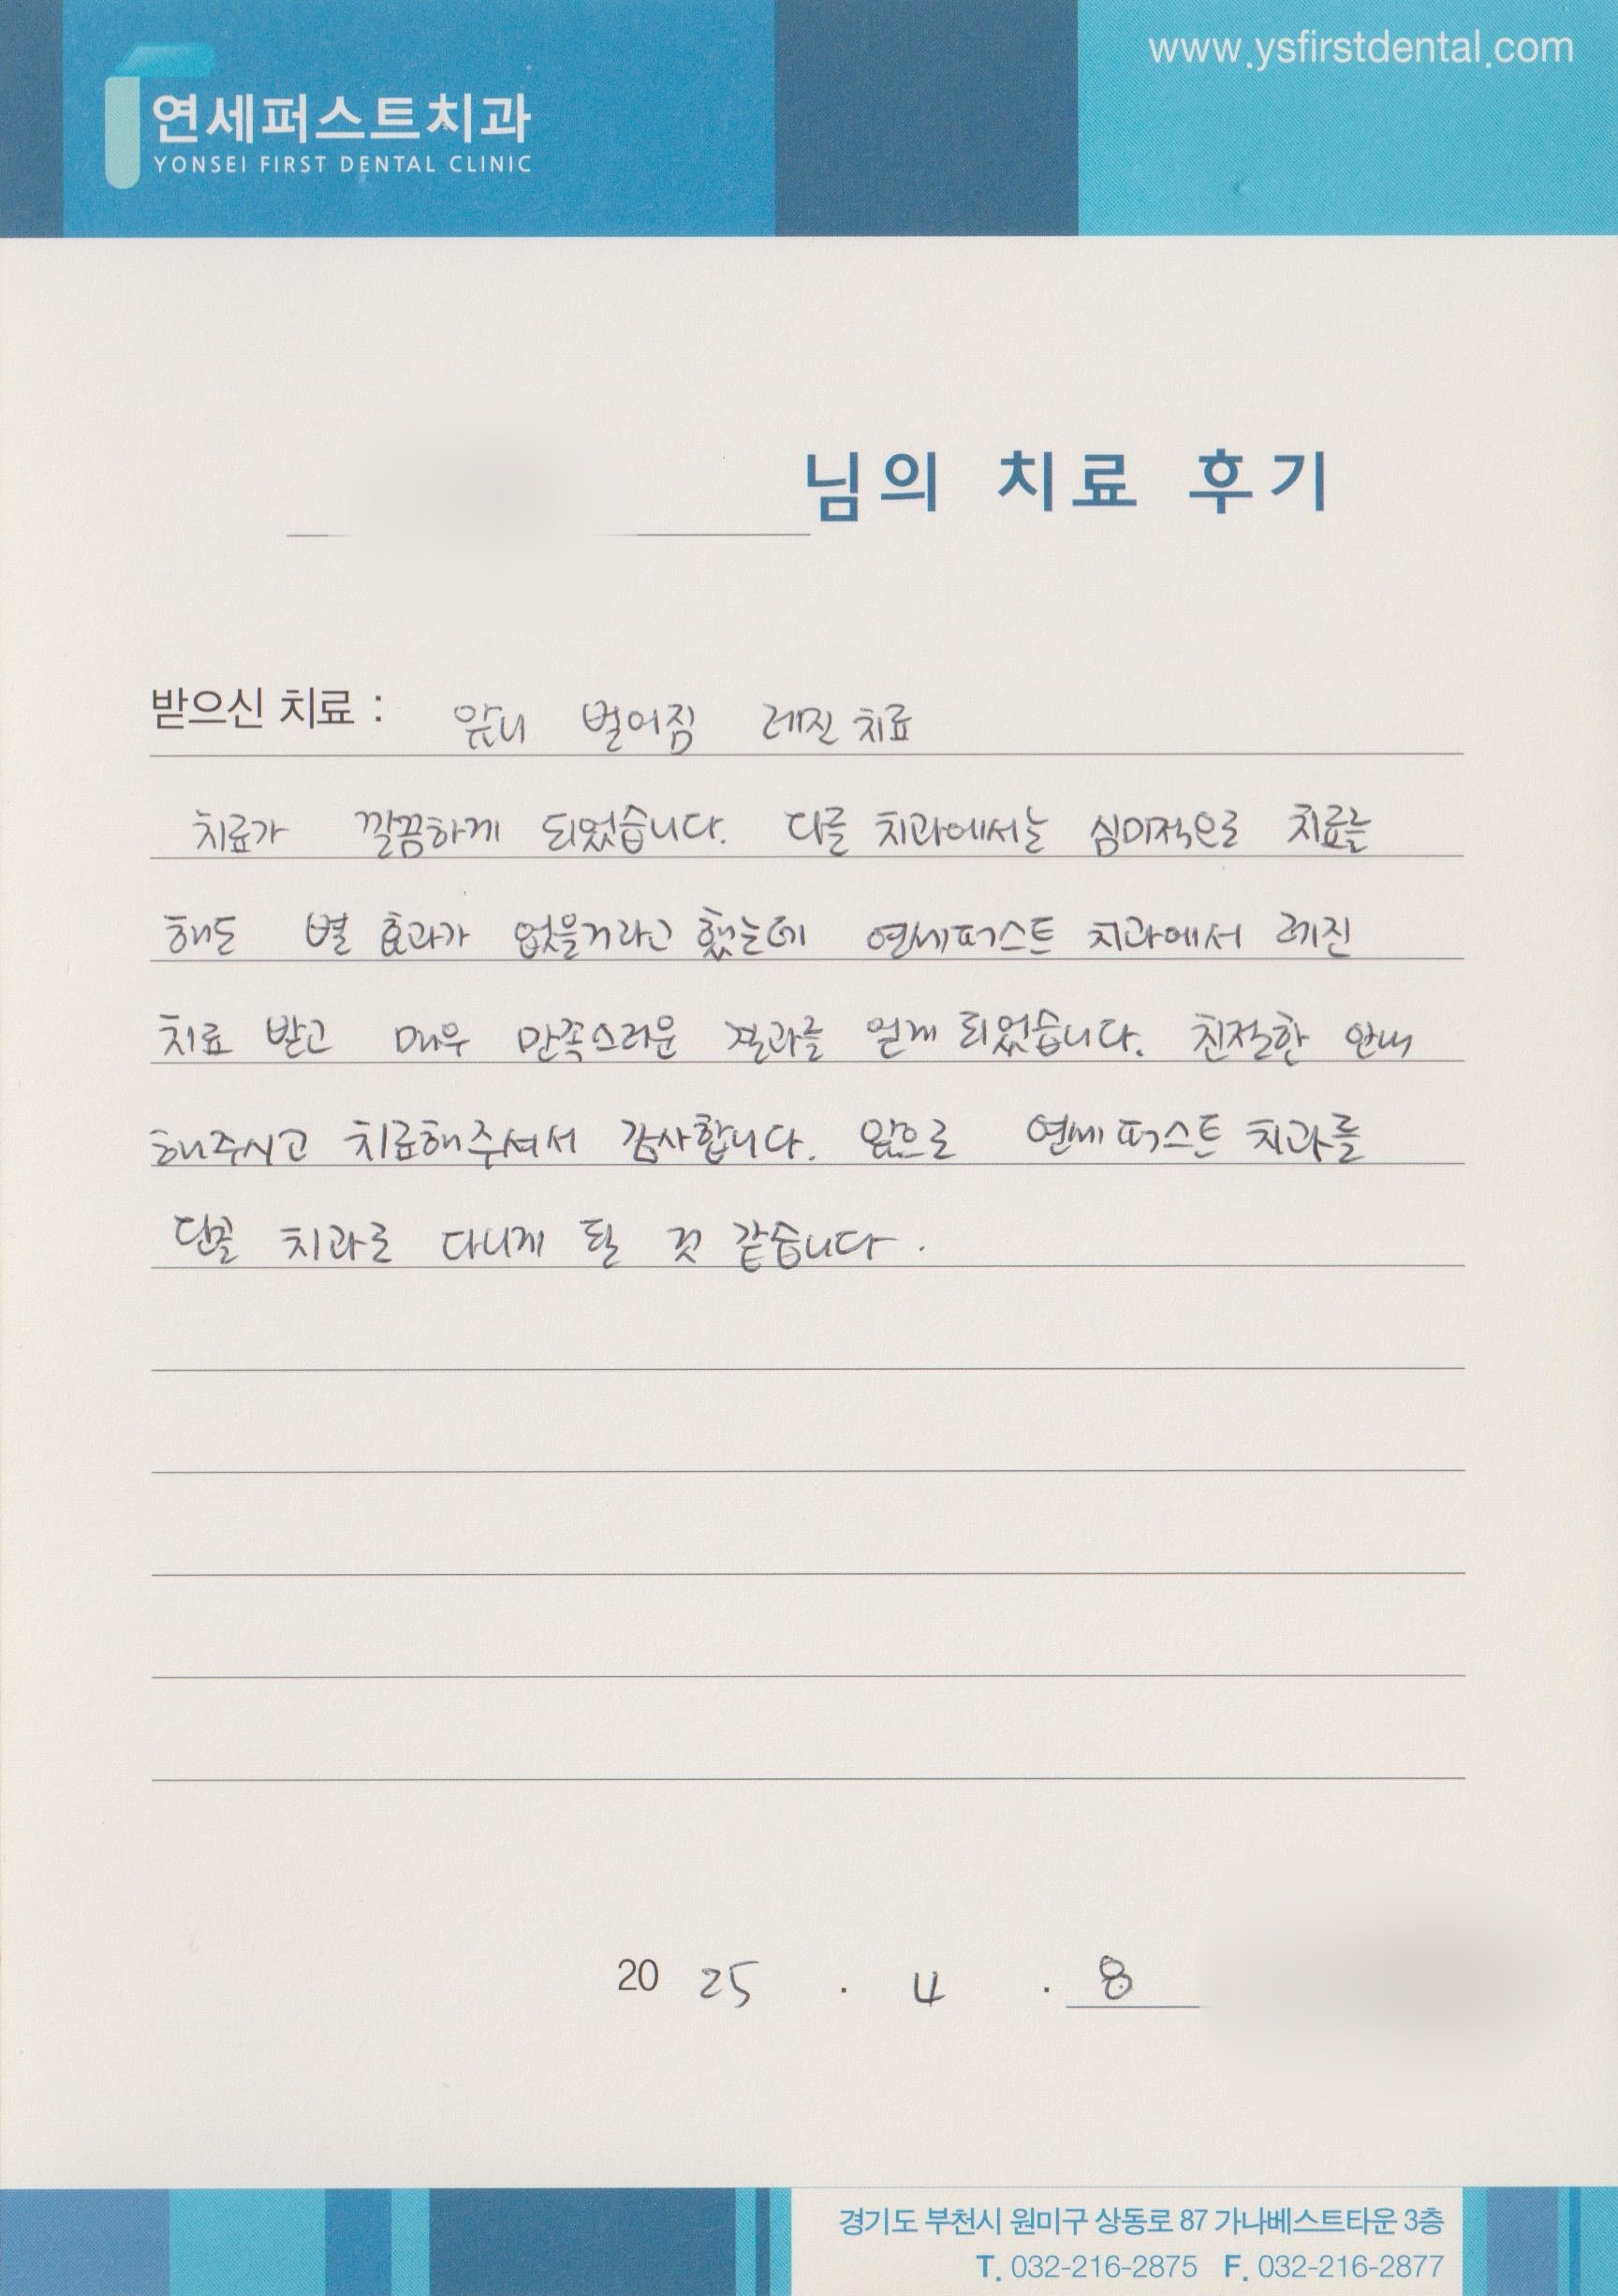 연세퍼스트치과
YONSEI FIRST DENTAL CLINIC
www.ysfirstdental.com
님의 치료 후기
받으신 치료 : 앞니 벌어짐 레진 치료
치료가 깔끔하게 되었습니다. 다른 치과에서는 심미적으로 치료를
해도 별 효과가 없을거라고 했는데 연세퍼스트 치과에서 레진
치료 받고 매우 만족스러운 결과를 얻게 되었습니다. 친절한 안내
해주시고 치료해주셔서 감사합니다. 앞으로 연세퍼스트 치과를
단골 치과로 다니게 될 것 같습니다.
2025 . 4 . 8
경기도 부천시 원미구 상동로 87 가나베스트타운 3층
T. 032-216-2875 F. 032-216-2877